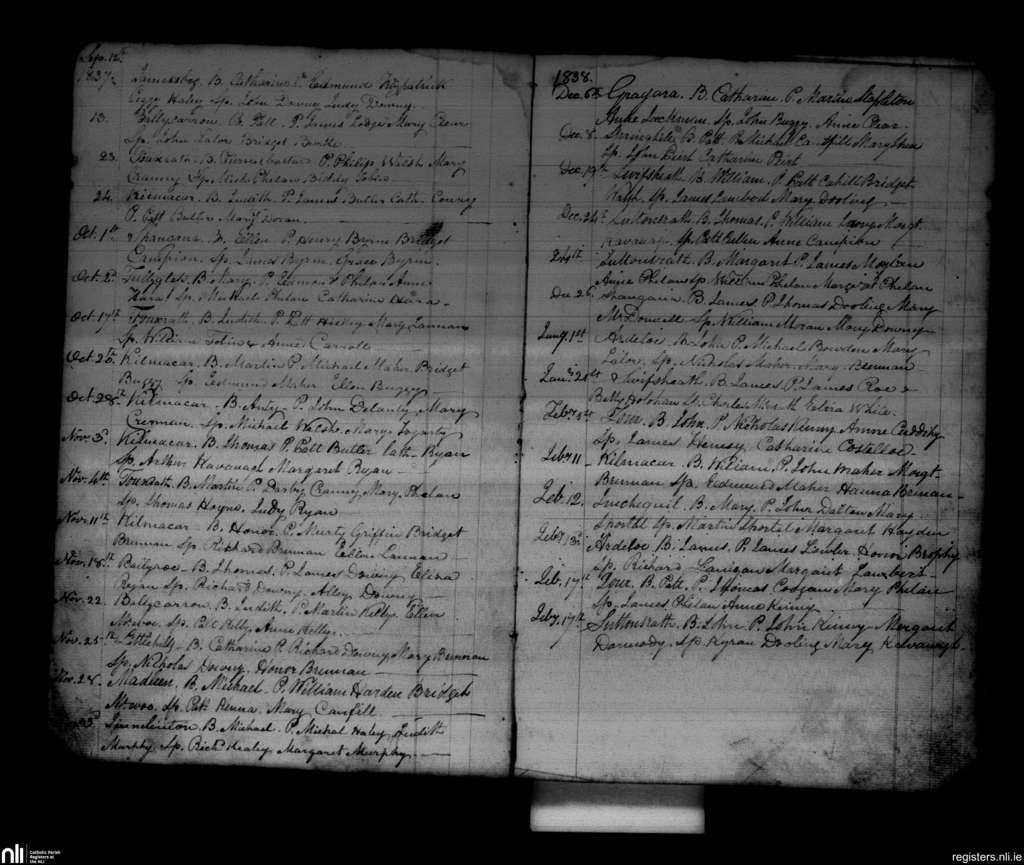 Sep. 12th
1837 Jamesbog. B. Catharine P. Edmund Fitzpatrick
Peggy Haley Sp. John Downy Judy Downy.
13. Ballycarron. B. Patt. P. James Lodge Mary Clear
Sp. John Lalor Bridget
23. Touxrath. B. P. Philip Walsh Mary
Cranny Sp. Mich. Phelan Biddy Tobin
24. Kilmacar. B. Judith. P. James Butler Cath.
P. Patt Butler Mary Doran.
Oct. 1st Shangana. B. Ellen P. Henry Byrne Bridget
Campion. Sp. James Byrne. Grace Byrne.
Oct. 2d B. Mary. P. Edmond Phelan Anne
Sp. Michael Phelan Catharine
Oct 17th Touxrath. B. Judith. P. Patt Hickey Mary Lannan
Sp. William Tobin & Anne Carroll
Oct 20th Kilmacar. B. Martin P. Michael Maher Bridget
Buggy Sp. Edmund Maher Ellen Buggy
Oct 28th Kilmacar. B. Anty. P. John Delanty Mary
Sp. Michael Mary Fogarty
Nov. 3d Kilmacar. B. Thomas P. Patt Butler Cath. Ryan
Sp. Arthur Kavanagh Margaret Ryan
Nov. 4th Touxrath. B. Martin P. Darby Cranny Mary Phelan
Sp. Thomas Hoyne Judy Ryan
Nov. 11th Kilmacar. B. Honor. P. Murty Griffin Bridget
Brennan Sp. Richard Brennan Ellen Lannan
Nov. 18th B. Thomas. P. James Downy Eliza
Ryan Sp. Richard Downy. Alley Downy
Nov. 22 Ballycarron. B. Judith. P. Martin Kelly. Ellen
Sp. Patt Kelly Anne Kelly.
Nov. 25th B. Catharine P. Richard Downy Mary Brennan
Sp. Nicholas Downy. Honor Brennan
Nov. 28. Madieen. B. Michael. P. William Harden Bridget
Sp. Patt Kenna. Mary Canfill.
B. Michael. P. Michael Haley Judith
Murphy Sp. Richd Healey Margaret Murphy
1838.
Dec. 6th Gragara. B. Catharine. P. Martin Stapleton
Anne Sp. John Buggy. Anne Clear
Dec. 8. Springhill B. Patt. P. Michael Mary Shea
Sp. Catharine
Dec 19th Swifsheath B. William. P. Patt Cahill Bridget
Walsh Sp. James Mary Dooling
Dec. 24th Suttonsrath B. Thomas P. William Margt.
Kavanagh Sp. Patt Cullen Anne Campion
24th Suttonsrath B. Margaret P. James
Anne Phelan Sp. William Phelan Margaret Phelan
Dec 26 Shangana B. James P. Thomas Dooling Mary
McDonnell Sp. William Moran Mary Downy
Jany. 1st Ardeloe B. John P. Michael Bowden Mary
Lalor, Sp. Nicholas Maher. Mary Brennan
Jany. 21st Swifsheath. B. James P. James Roe &
Betty Holohan Sp. Charles White.
Feby. Tour B. John P. Nicholas Kinny Anne Cuddihy
Sp. James Henesy Catharine Costelloe
Feby 11 Kilmacar. B. William. P. John Maher Margt.
Brennan Sp. Edmund Maher Hanna Brenan
Feb 12. Inchequil B. Mary. P. John Dalton Mary
Shortil Sp. Martin Shortel Margaret Hayden
Feby Ardeloe B. James. P. James Lawler Honor Brophy
Sp. Richard Lanigan Margaret Lambert
Feb. 17th Tour. B. Patt. P. Thomas Coogan Mary Phelan
Sp. James Phelan Anne Kinny
Feby. 17th Suttonsrath. B. John. P. John Kinny Margaret
Sp. Kyran Dooling Mary Kavanagh
nli Catholic Parish
Registers at
the NLI
registers.nli.ie